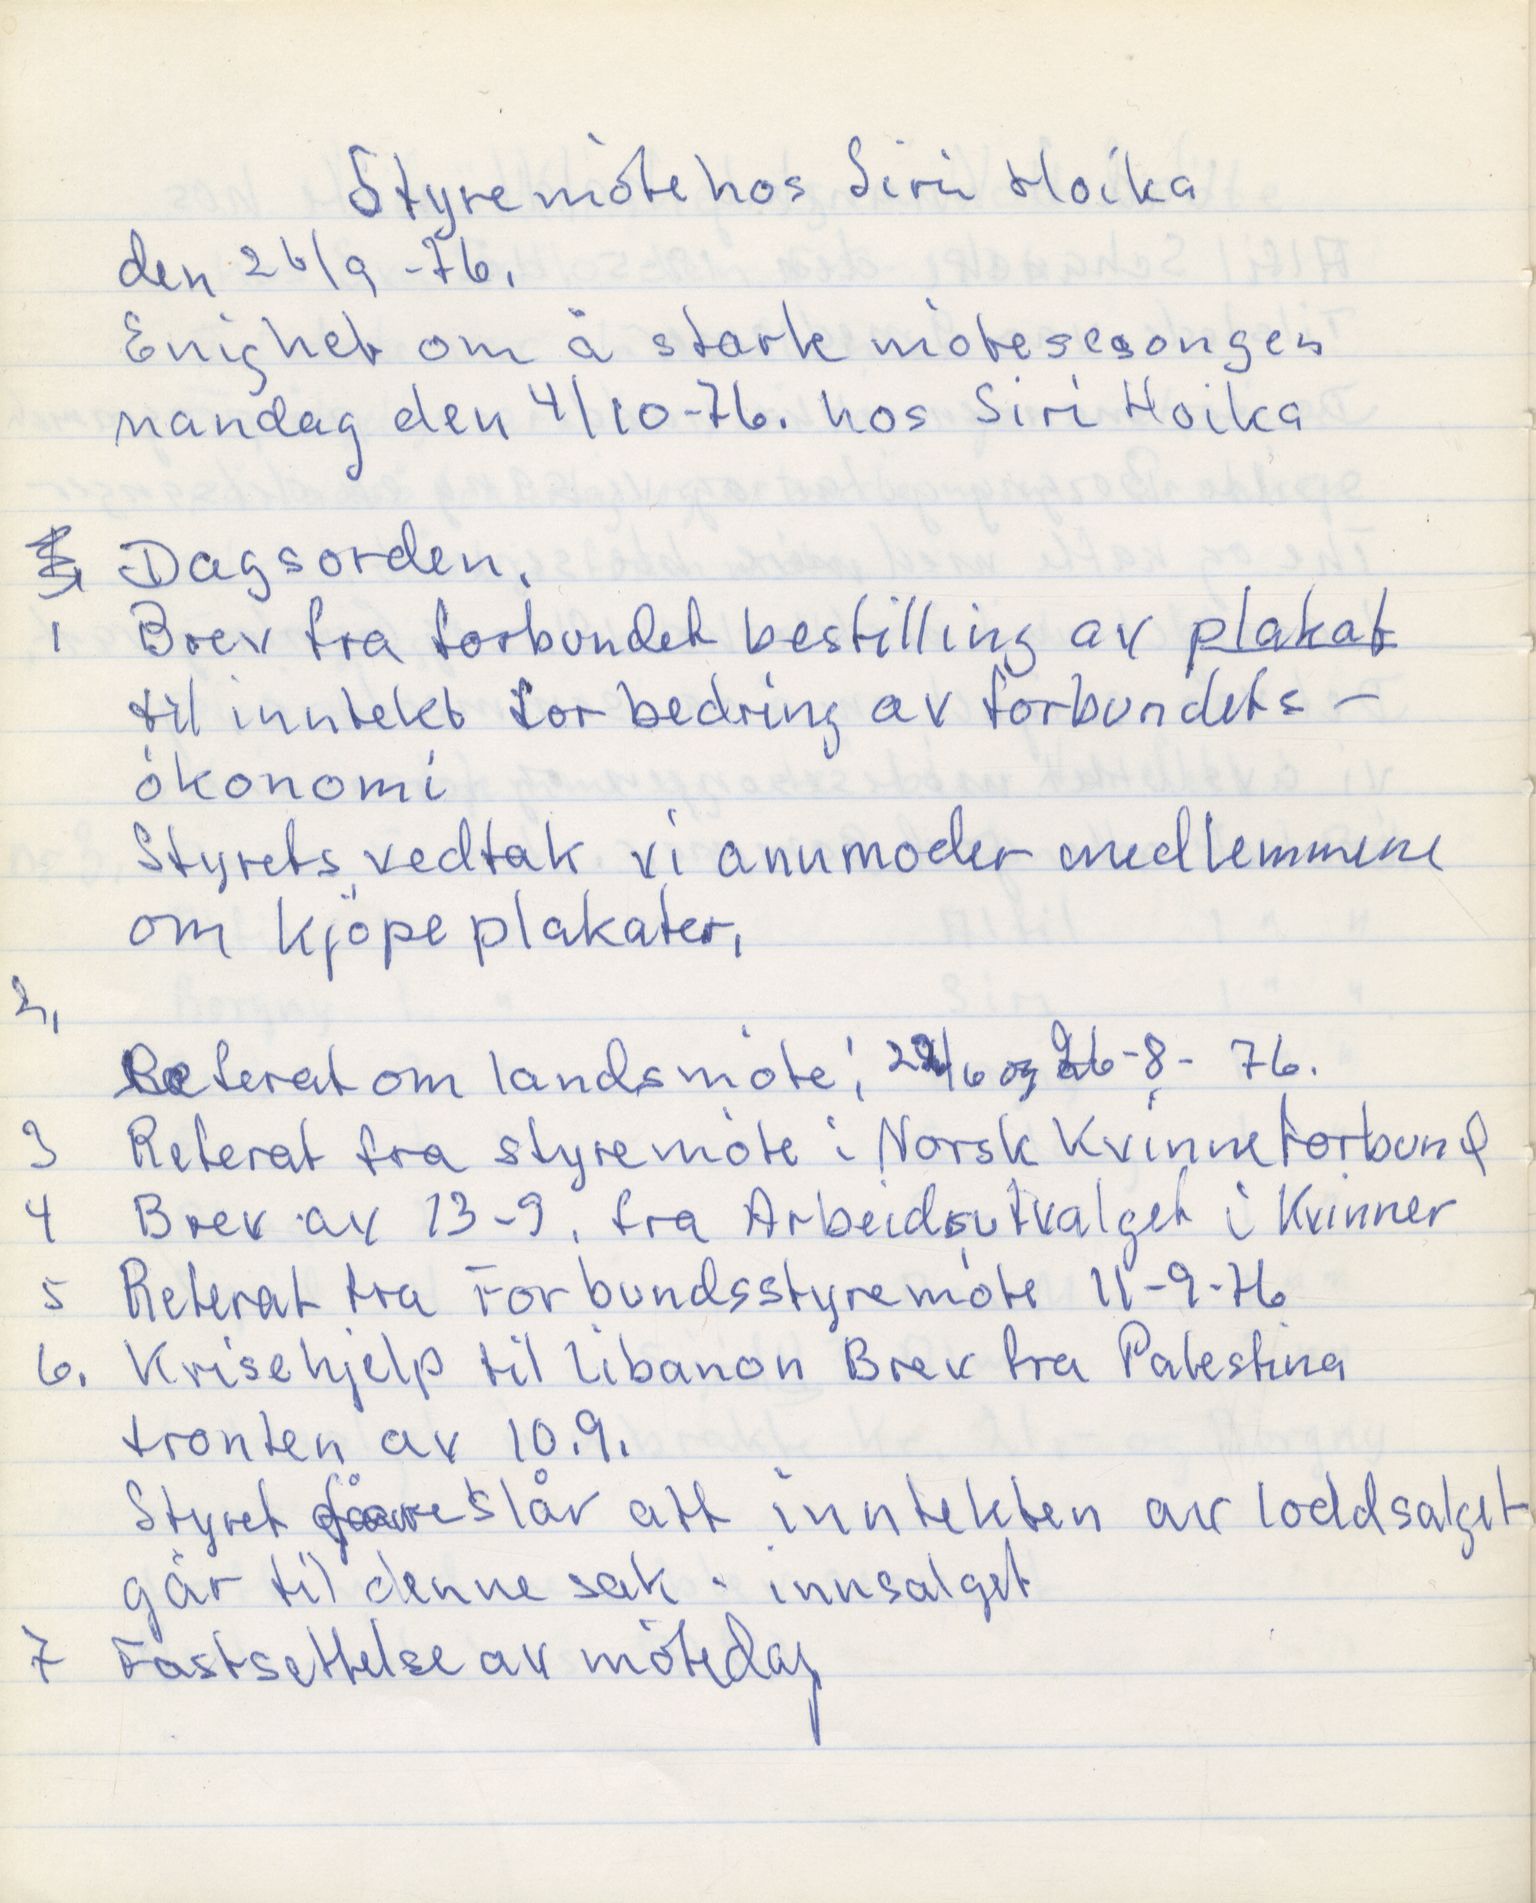 Styremöte hos Siri Hoika
den 26/9 -76.
Enighet om å starte mötesesongen
mandag den 4/10-76. hos Siri Hoika
Dagsorden.
1 Brev fra forbundet bestilling av plakat
til inntekt for bedring av forbundets-
ökonomi
Styrets vedtak vi anumoder medlemmene
om kjöpe plakater,
2,
Referat om landsmöte, og 26-8- 76.
3 Referat fra styremöte i Norsk Kvinneforbund
4 Brev av 13-9, fra Arbeidsutvalget i Kvinner
5 Referat fra Forbundsstyremöte 11-9-76
6. Krisehjelp til Libanon Brev fra Palestina
fronten av 10.9.
Styret föreslår att inntekten av loddsalget
går til denne sak. innsalget
7 Fastsettelse av mötedag